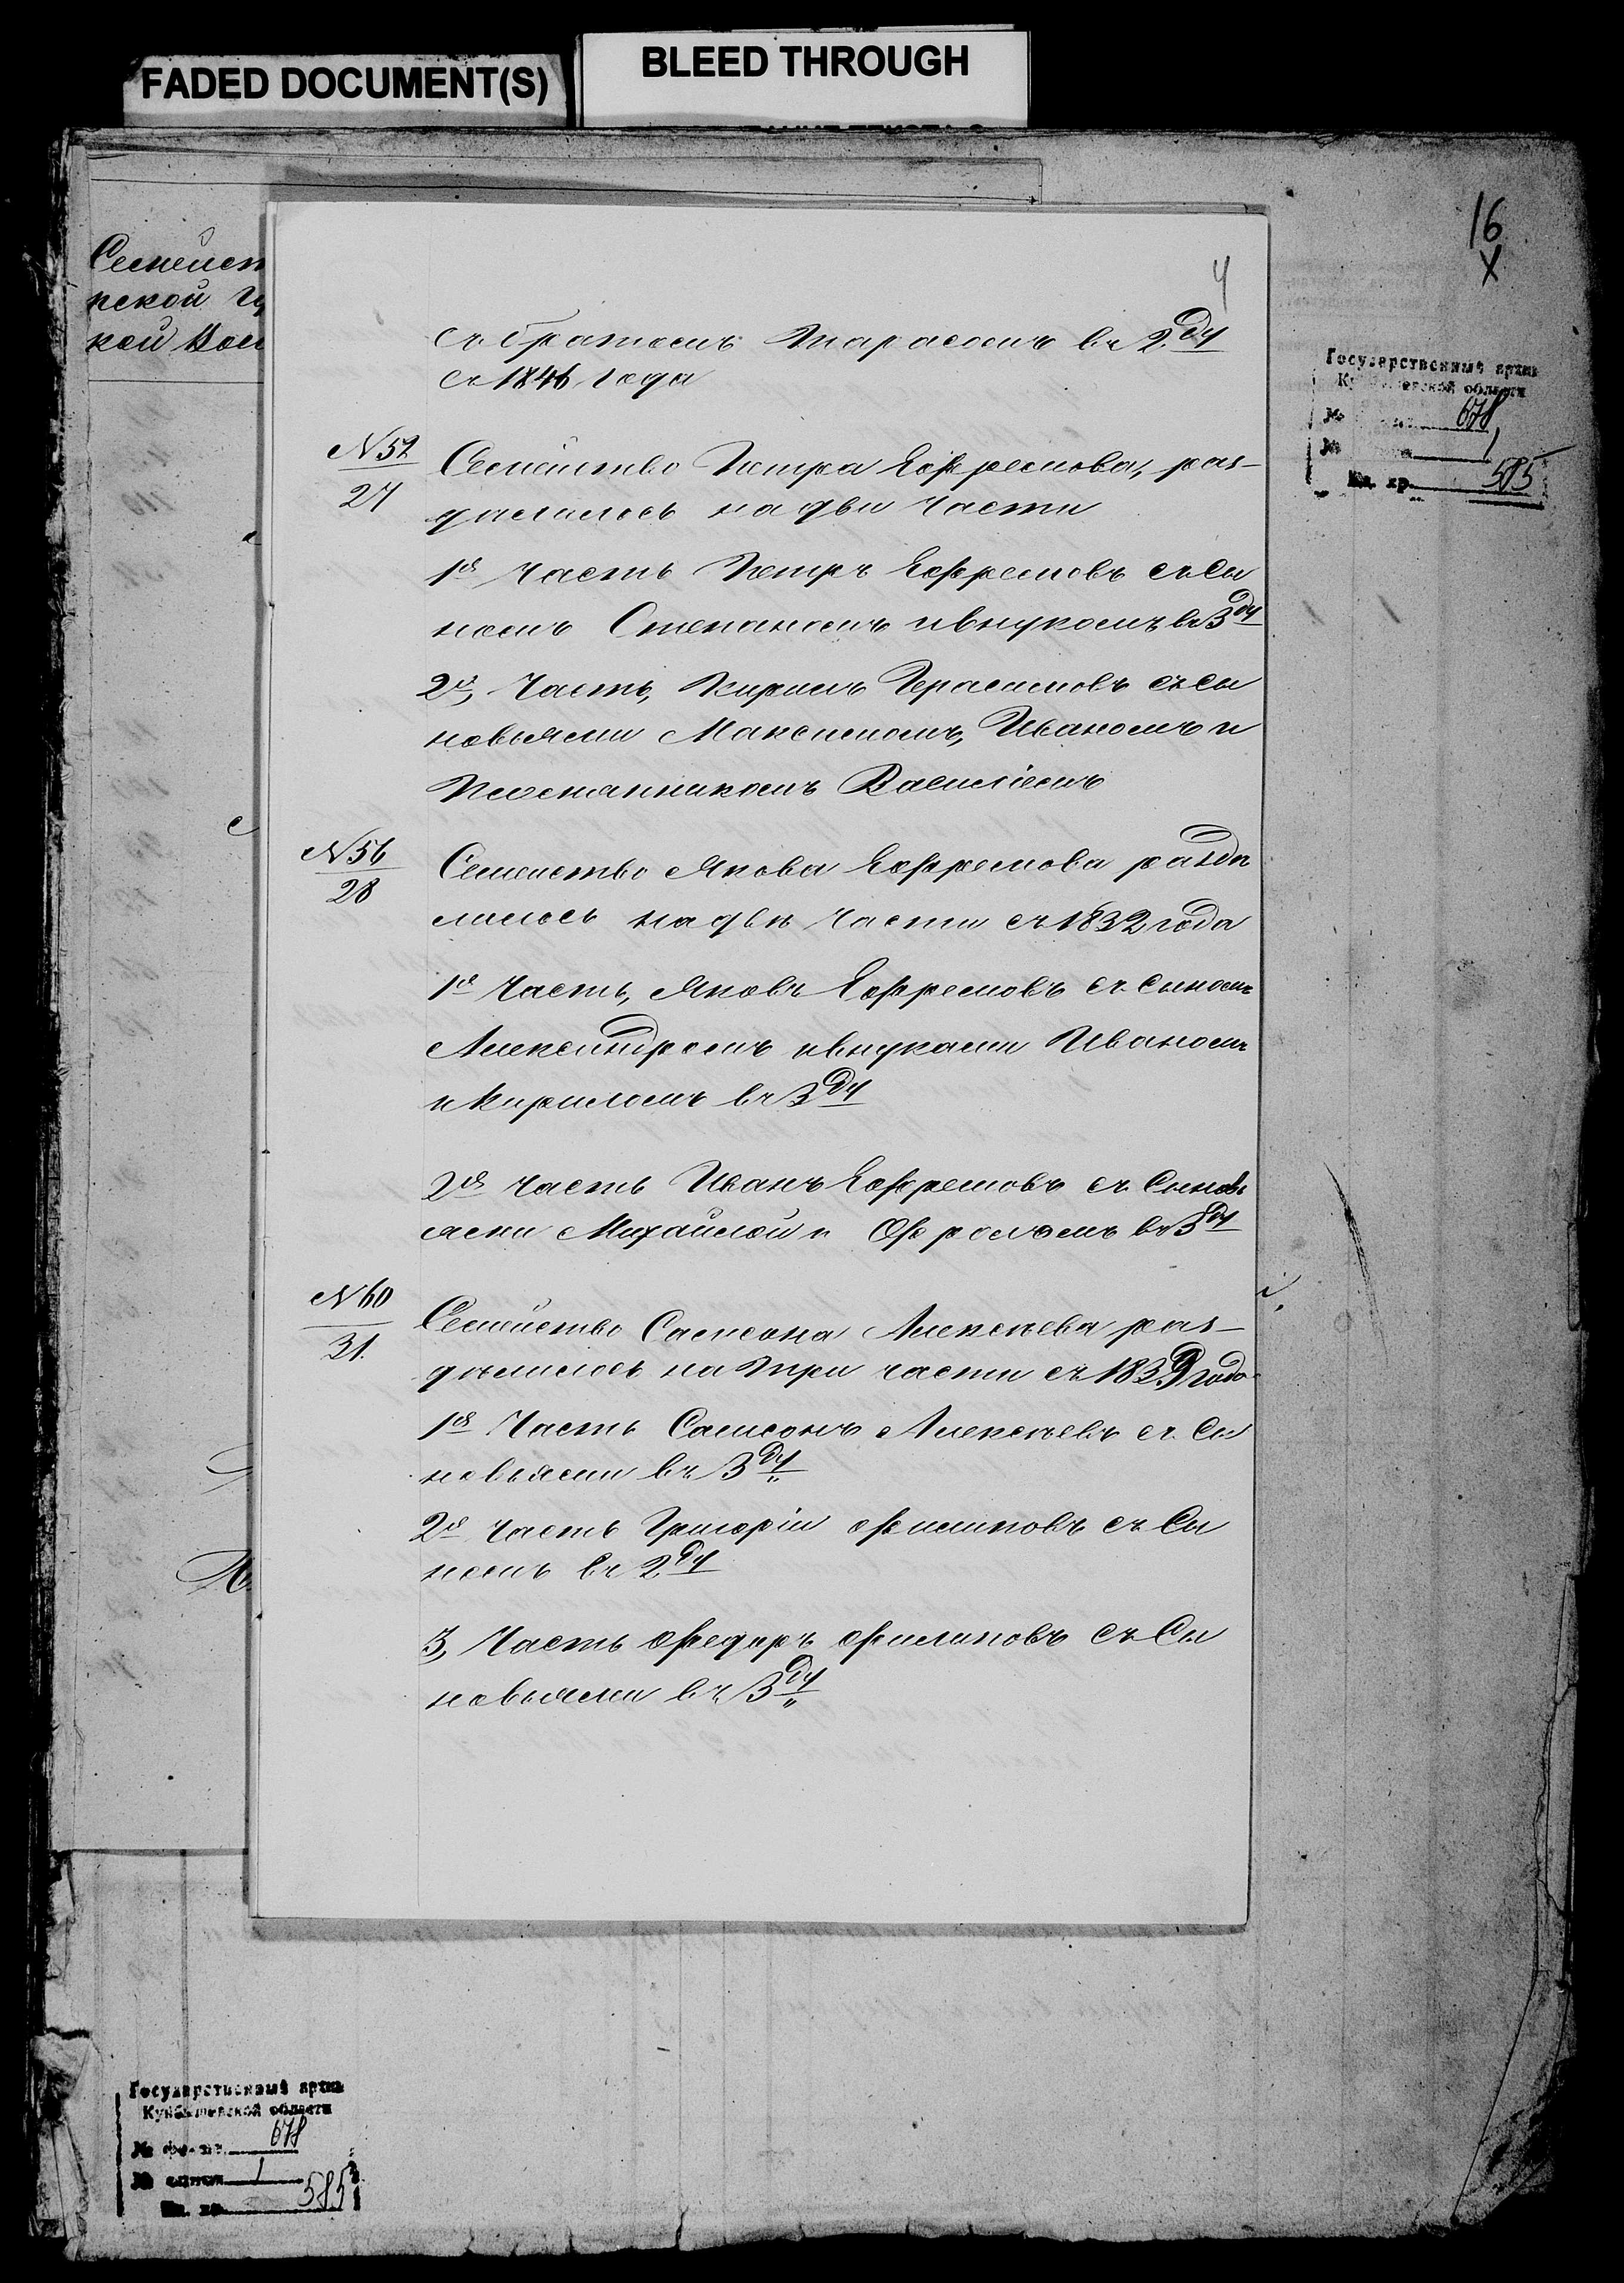 FADED DOCUMENT(S)
BLEED THROUGH
16
х
Семейст
пской Гу
кой Вол
4
съ братомъ Тарасомъ въ 2 ду
съ 1846 года
N 52
27
Семейство Петра Ефремова, раз-
делилось на две части
1я Часть Петръ Ефремовъ съ Сы
номъ Степаномъ и внукомъ въ 3 ду
2я Часть, Кирилъ Герасимовъ съ сы
новьями Максимомъ, Иваномъ и
Племянникомъ Василіемъ
N 56
28
Семейство Якова Ефремова разде
лилось на две части съ 1832 года
1я Часть, Яковъ Ефремовъ съ сыномъ
Александромъ и внуками Иваномъ
и Кириломъ въ 3 ду
2я часть Иванъ Ефремовъ съ Сыновь
ями Михайлой и Фроломъ въ 3 ду
N 60
31.
Семейство Самсона Алексеева раз-
делилось на три части съ 1839 года
1я Часть Самсонъ Алексеевъ съ Сы
новьями въ 3 ду
2я часть Григорій Филиповъ съ Сы
номъ въ 2 ду
3, Часть Федоръ Филиповъ съ Сы
новьями въ 3 ду
Государственный архив
Куйбышевской области
№ 678
№ 1
Ед. хр. 585
Государственный архив
Куйбышевской области
№ фонда 678
№ описи 1
Ед. хр. 585